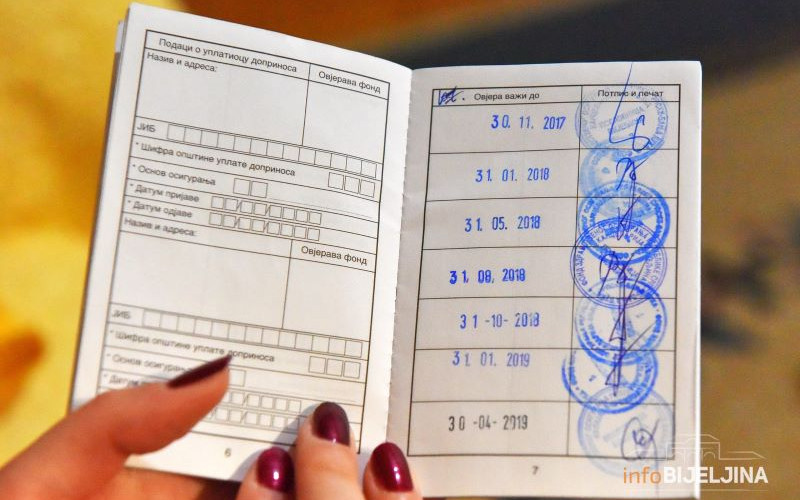 Подаци о уплатиоцу доприноса
Назив и адреса:
Овјерава фонд
ЈИБ
* Шифра општине уплате доприноса
* Основ осигурања
* Датум пријаве
* Датум одјаве
Назив и адреса:
Овјерава фонд
ЈИБ
* Шифра општине уплате доприноса
* Основ осигурања
* Датум
6
Овјера важи до
Потпис и печат
30. 11. 2017
31. 01. 2018
31. 05. 2018
31. 08. 2018
31 -10- 2018
31. 01. 2019
30 -04- 2019
7
infoBIJELJINA